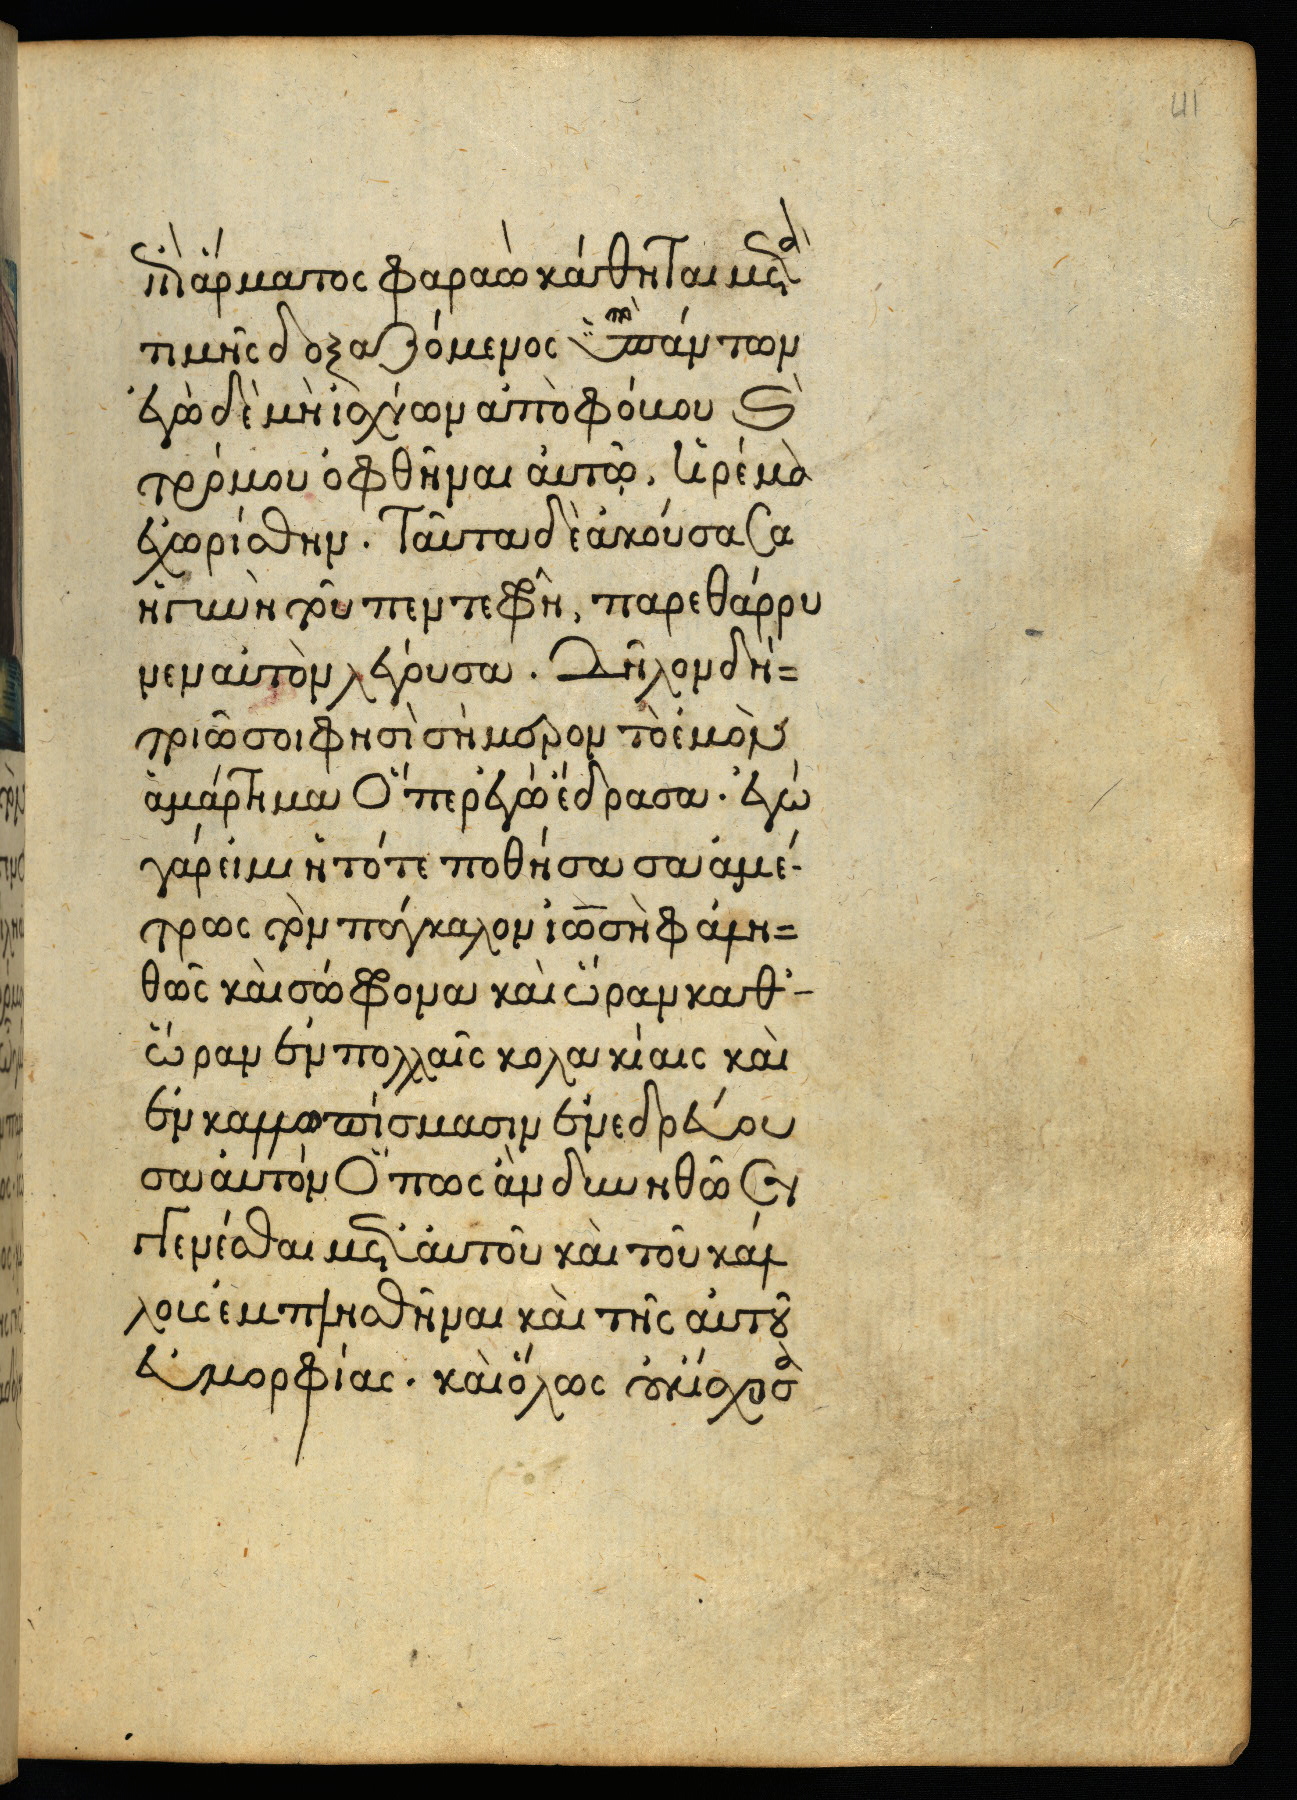 41
ἐπὶ ἅρματος φαραὼ κάθηται μετὰ
τιμῆς δοξαζόμενος ὑπὸ πάντων
ἐγὼ δὲ μὴ ἰσχύων ἀπὸ φόβου καὶ
τρόμου ὀφθῆναι αὐτῷ,
ἐχωρίσθην. Ταῦτα δὲ ἀκούσασα
ἡ γυνὴ τοῦ πεντεφῆ, παρεθάρρυ
νεν αὐτὸν λέγουσα. Δῆλον δή=
σοι φησὶ σήμερον τὸ ἐμὸν
ἁμάρτημα Ὅπερ ἐγὼ ἔδρασα. Ἐγὼ
γάρ εἰμι ἡ τότε ποθήσασα ἀμέ-
τρως τὸν πάγκαλον ἰωσὴφ ἀλη=
θῶς καὶ σώφρονα καὶ ὥραν καθ'-
ὥραν ἐν πολλαῖς κολακίαις καὶ
ἐν καλλωπίσμασιν ἐνεδρεύου
σα αὐτὸν Ὅπως ἂν δυνηθῶ συγ
γενέσθαι μετ' αὐτοῦ καὶ τοῦ κάλ
λους ἐμπλησθῆναι καὶ τῆς αὐτοῦ
εὐμορφίας. καὶ ὅλως οὐκ ἴσχυσα